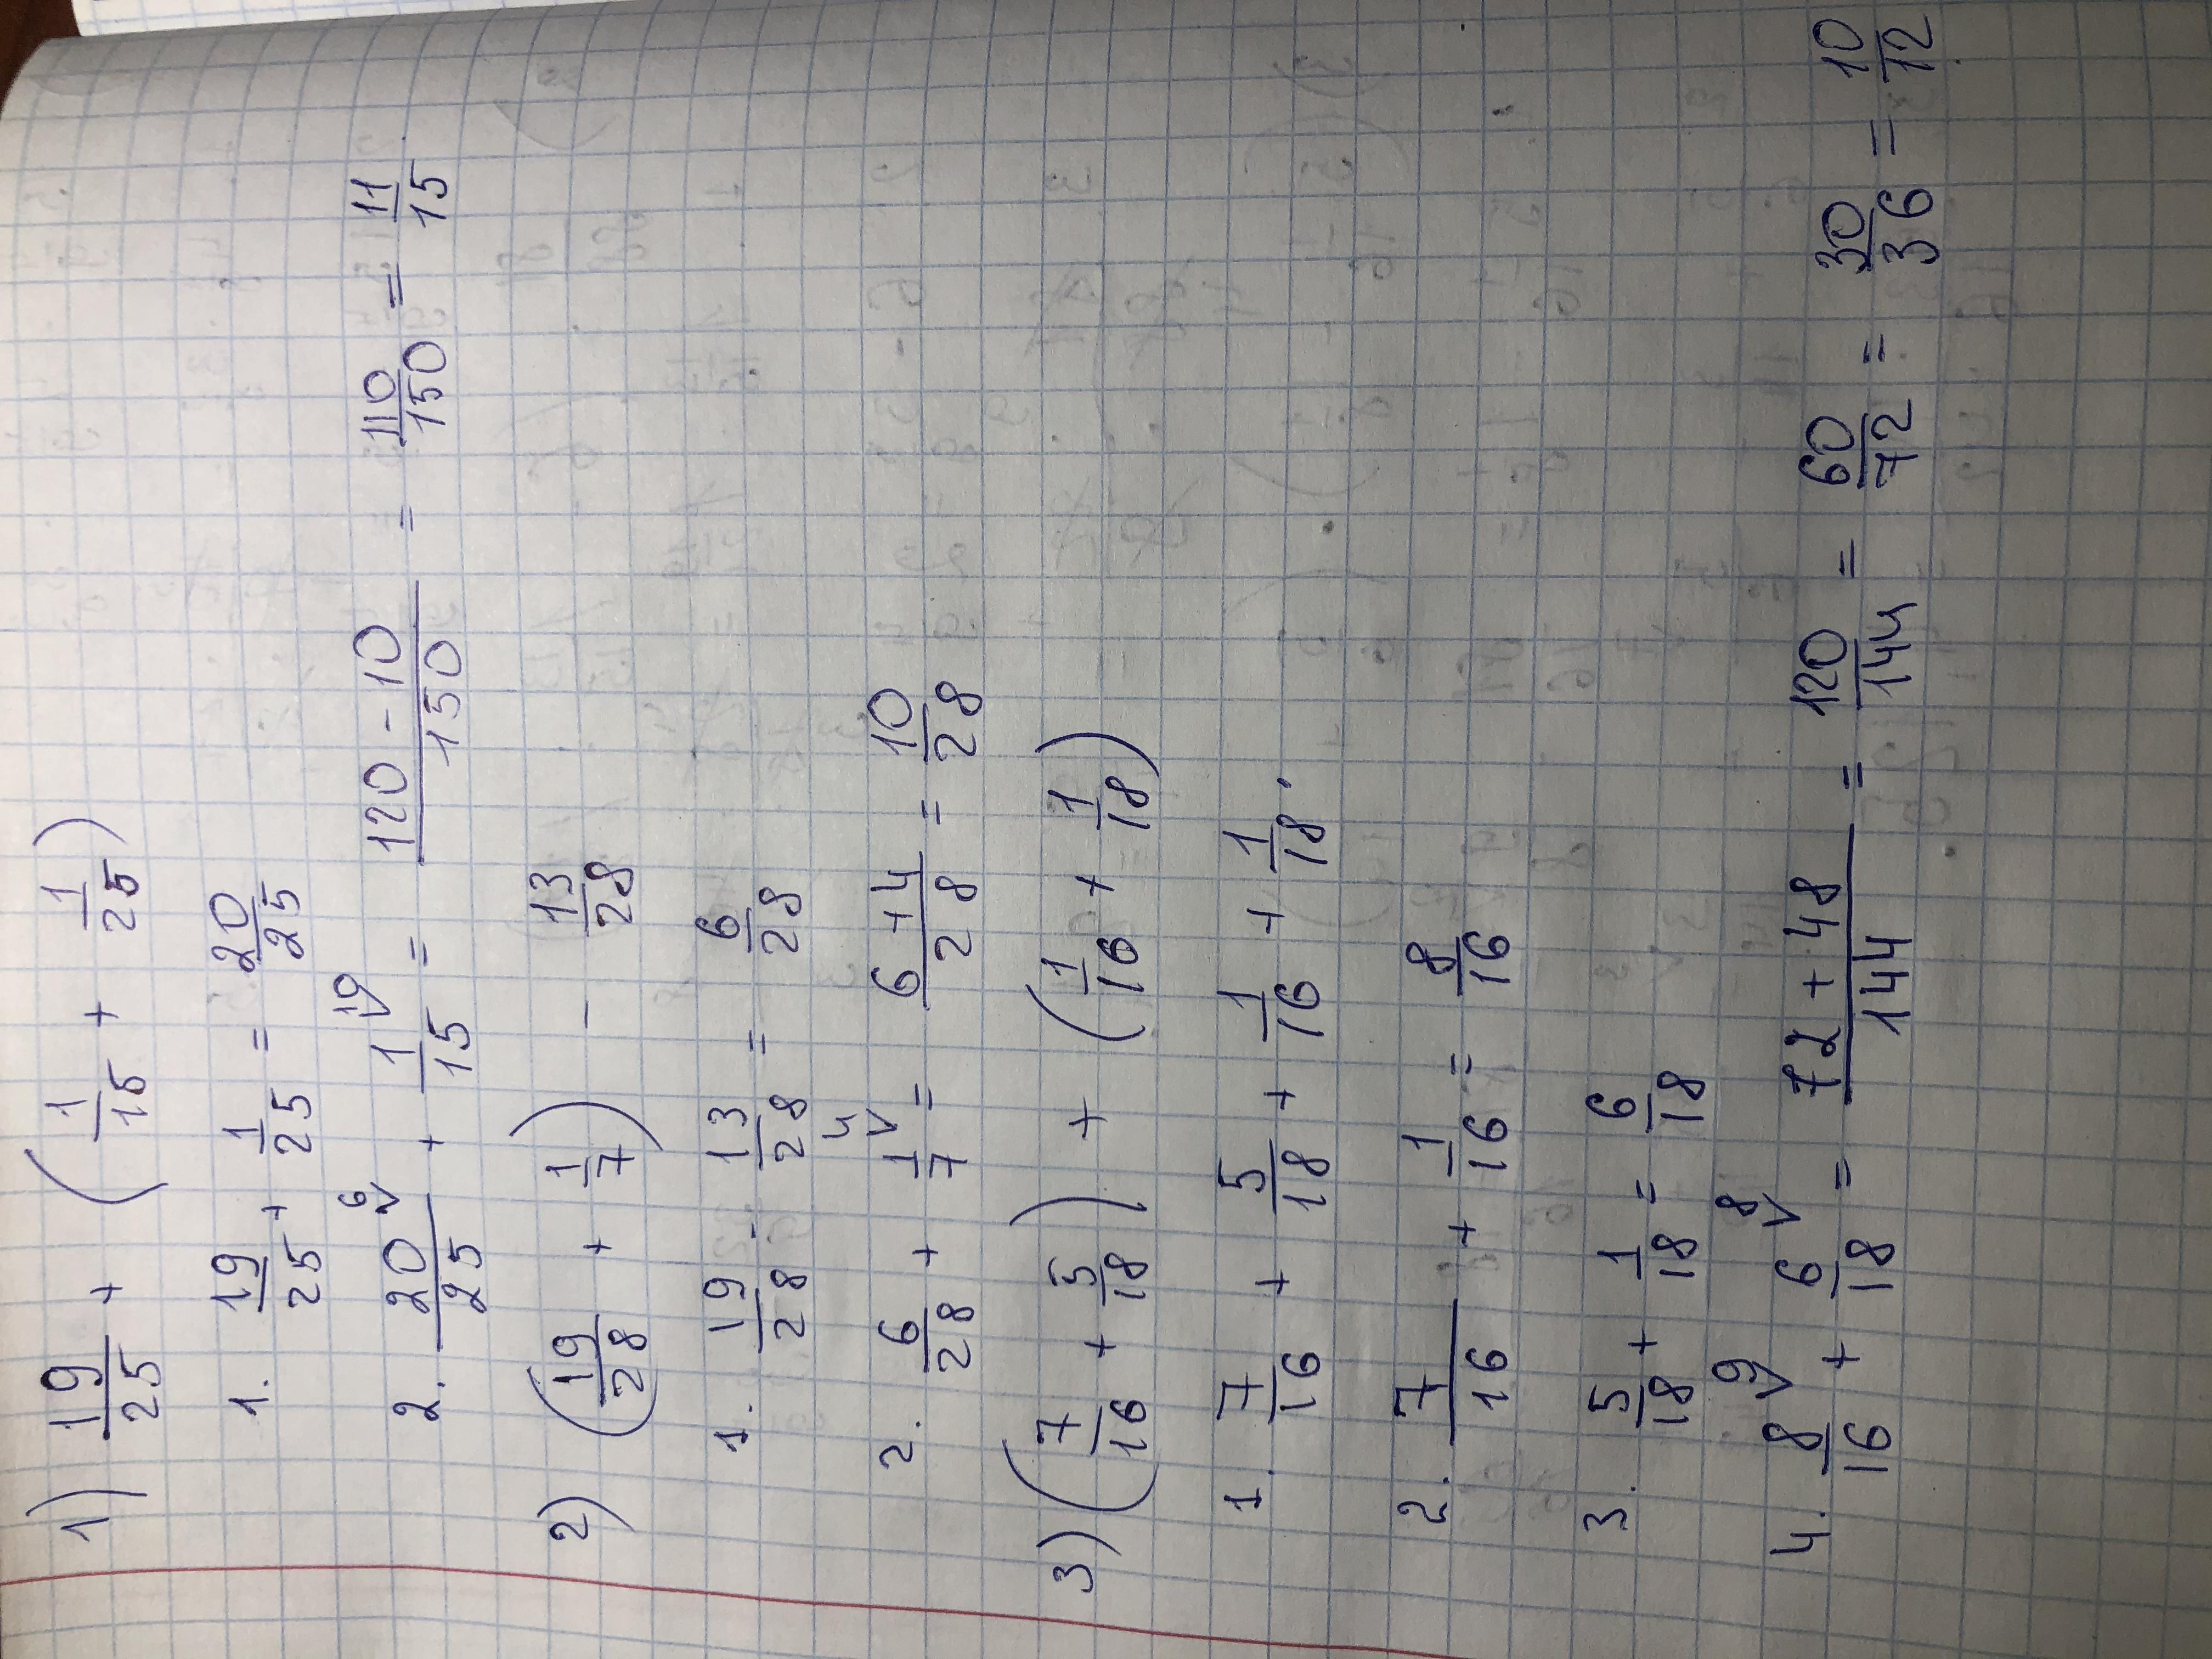 1) 19/25 + (1/15 + 1/25)
1. 19/25 + 1/25 = 20/25
2. 20/25 ⁶ + 1/15 ¹⁰ = 120 - 10/150 = 110/150 = 11/15
2) (19/28 + 1/7) - 13/28
1. 19/28 - 13/28 = 6/28
2. 6/28 + 1/7 ⁴ = 6+4/28 = 10/28
3) (7/16 + 5/18) + (1/16 + 1/18)
1. 7/16 + 5/18 + 1/16 + 1/18.
2. 7/16 + 1/16 = 8/16
3. 5/18 + 1/18 = 6/18
4. 8/16 ⁹ + 6/18 ⁸ = 72 + 48/144 = 120/144 = 60/72 = 30/36 = 10/12